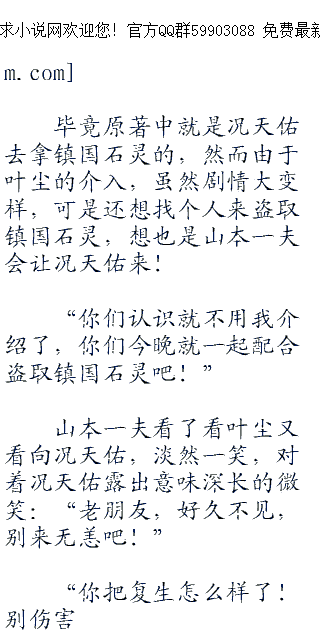 求小说网欢迎您！官方QQ群59903088 免费最新
m.com]
毕竟原著中就是况天佑
去拿镇国石灵的，然而由于
叶尘的介入，虽然剧情大变
样，可是还想找个人来盗取
镇国石灵，想也是山本一夫
会让况天佑来！
“你们认识就不用我介
绍了，你们今晚就一起配合
盗取镇国石灵吧！”
山本一夫看了看叶尘又
看向况天佑，淡然一笑，对
着况天佑露出意味深长的微
笑：“老朋友，好久不见，
别来无恙吧！”
“你把复生怎么样了！
别伤害